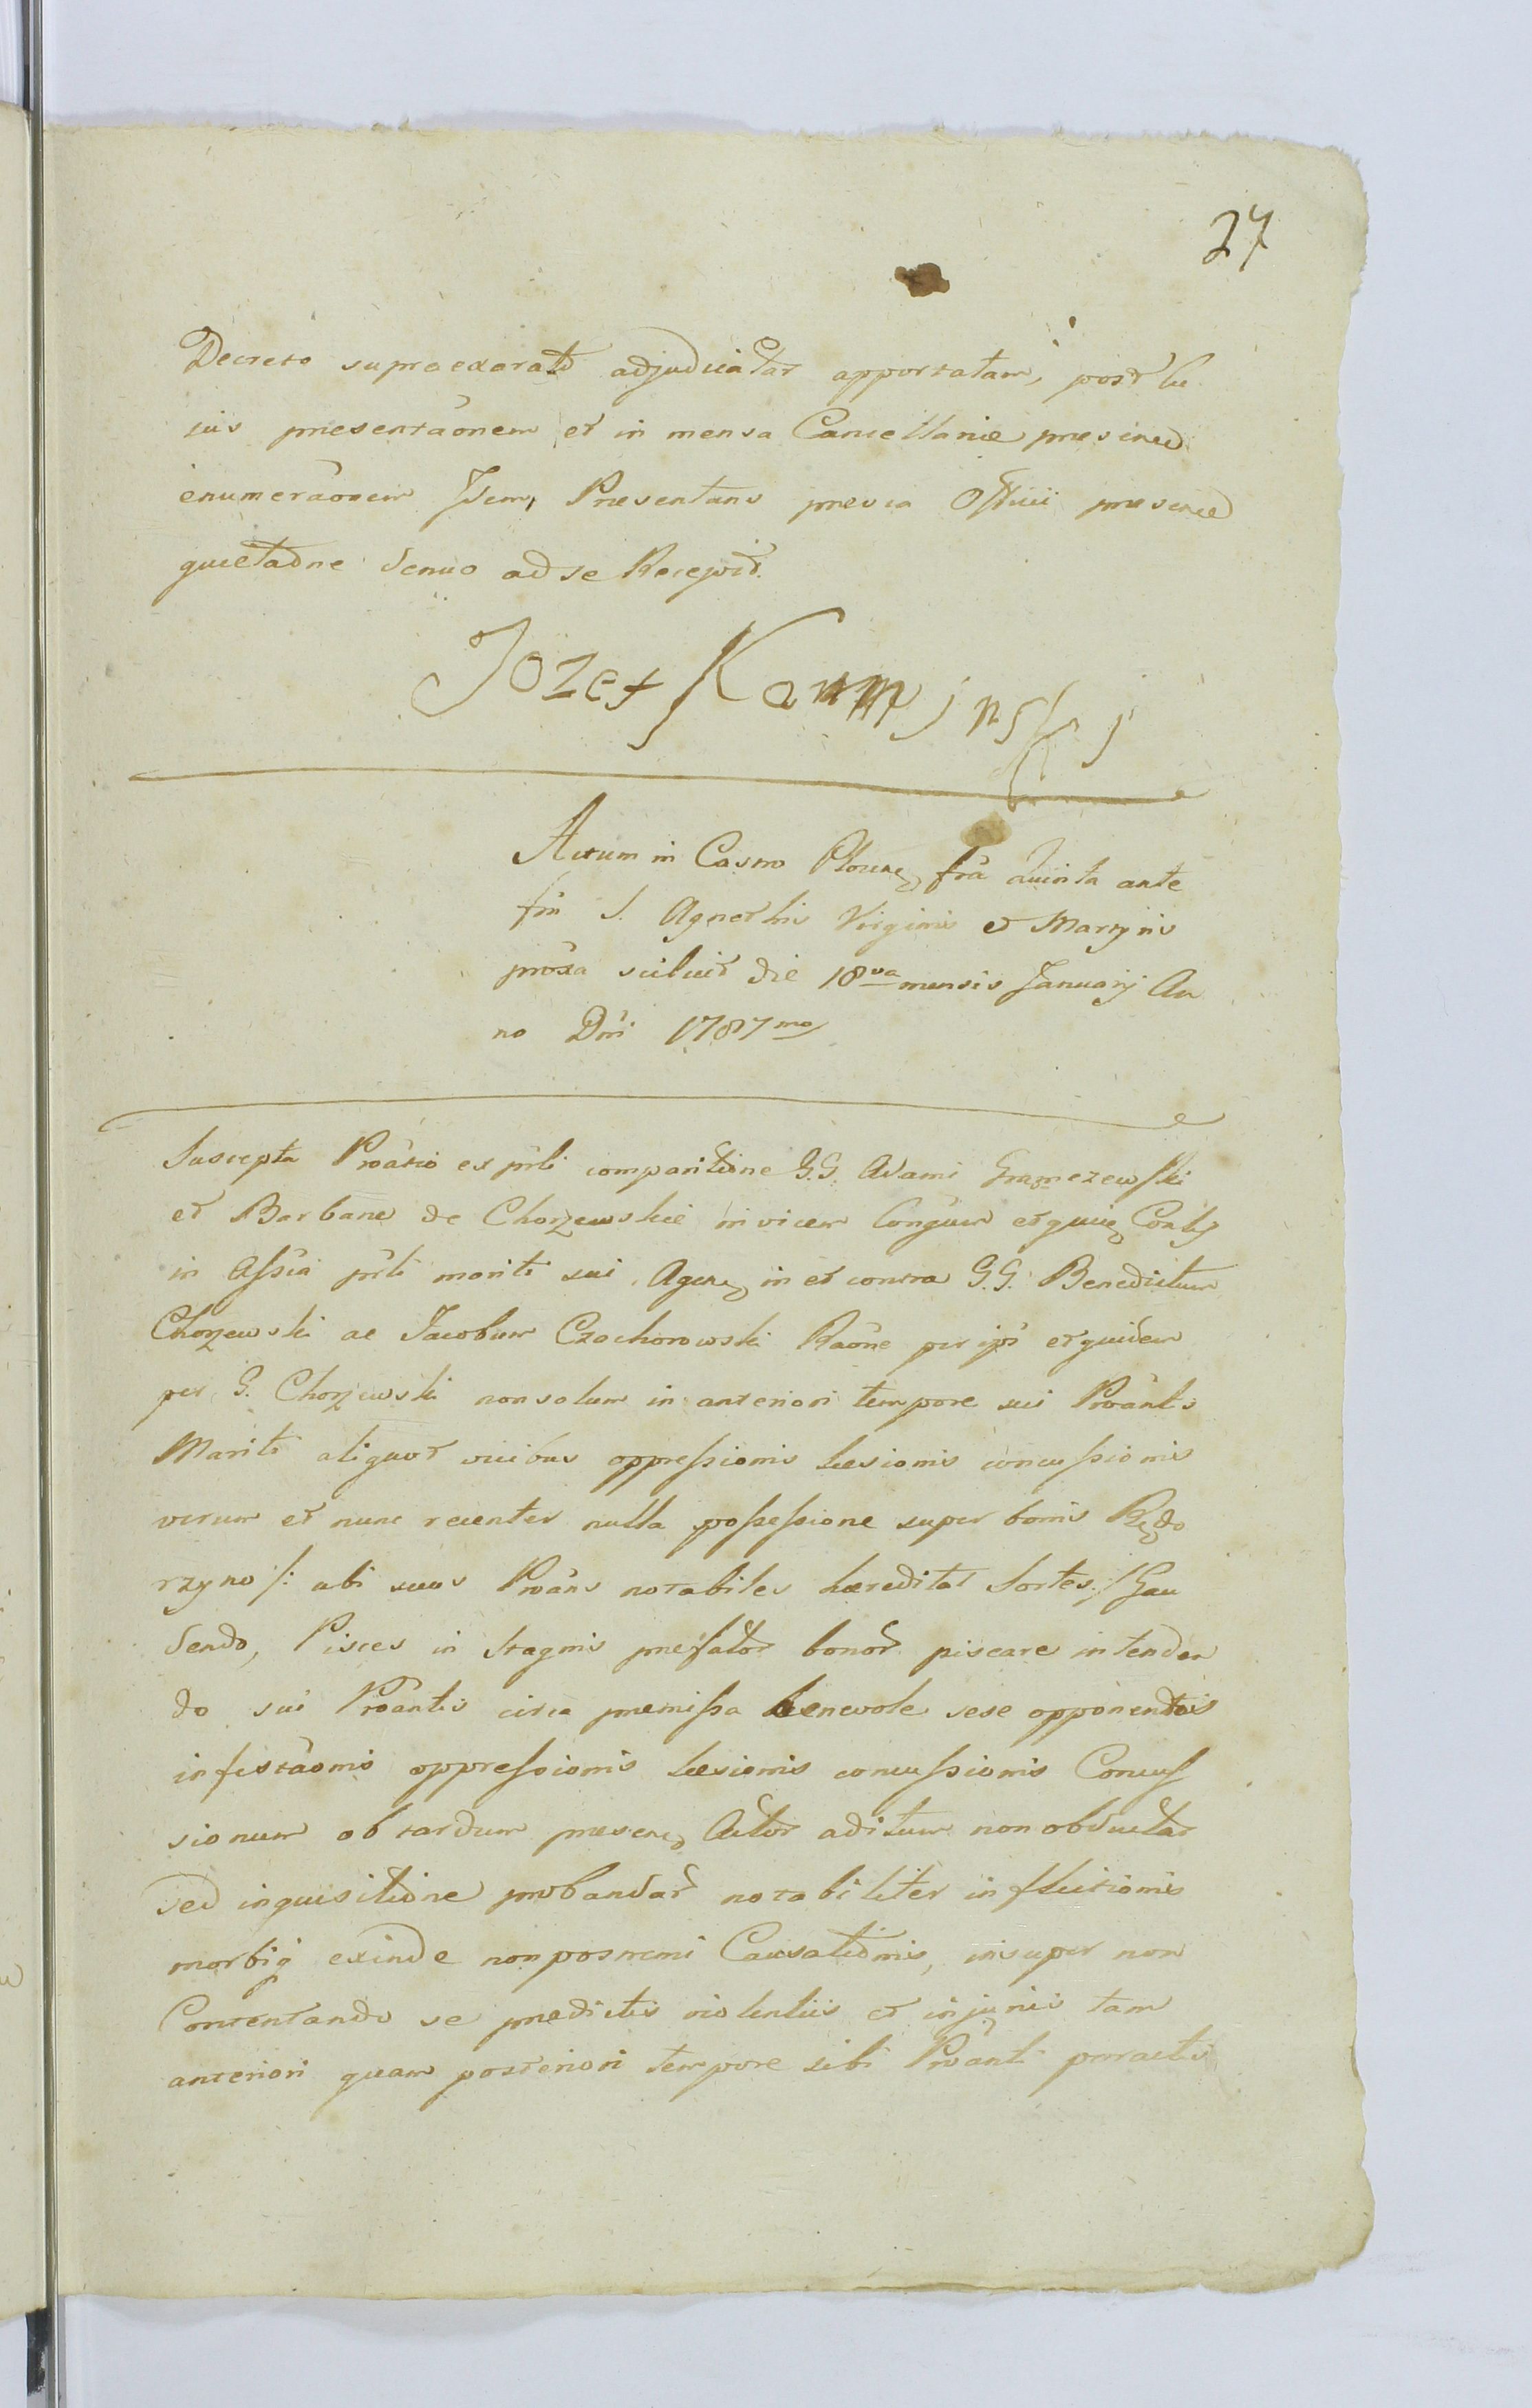 27
Decreto supraexarato adjudicatar apportatam, post hu
jus presentaonem et in mensa Cancellariæ presened
enumeraonem Idem, Presentans previa Officii presened
quietaone denuo ad se Recepit.
Jozef Kamminskj
Actum in Castro Plocen fra Quinta ante
ftm S. Agnethis Virginis et Martyris
proxa scilicet die 18va mensis Januarij An
no Dni 1787mo
Suscepta Proatio ex prli comparitione G.G. Adami Gramczewski
et Barbaræ de Chorzewskie invicem Congum et quie Contis
in Assia prli mariti sui Agen in et contra G.G. Benedictum
Chorzewski ac Jacobum Czochorowski Raone per ips et quidem
per G. Chorzewski non solum in anteriori tempore sui Proantis
Mariti aliquot vicibus oppressionis læsionis concussionis
verum et nunc recenter nulla possessione super bonis Rędo
rzyno /: ubi suas Proans notabiles hæreditat Sortes :/ Gau
dendo, Pisces in Stagnis prefator bonor piscare intenden
do sui Proantis circa premissa benevole sese opponentis
infestaonis oppressionis læsionis concussionis Concus
sionum ob tardum presen Actor aditum non obductar
sed inquisitione probandar notabiliter inflictionis
morbiq exinde non postremi Causationis, insuper non
Contentando se predictis violentiis et injuriis tam
anteriori quam posteriori tempore sibi Proanti peractis